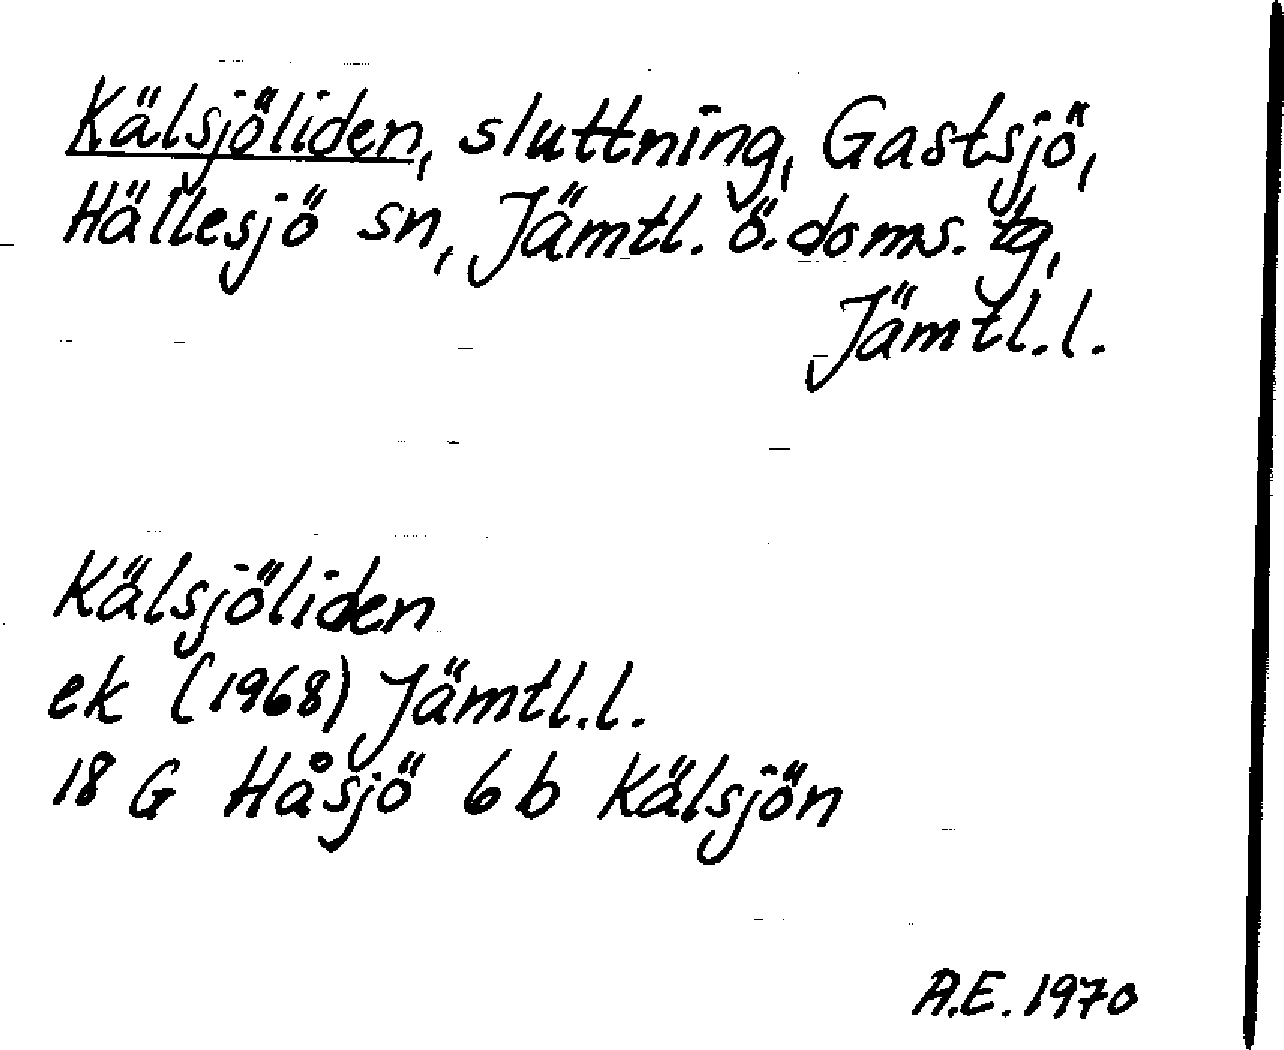 Kälsjöliden, sluttning, Gastsjö,
Hällesjö sn, Jämtl. ö. doms. tg,
Jämtl. l.
Kälsjöliden
ek (1968) Jämtl. l.
18 G Håsjö 6b Kälsjön
A.E. 1970